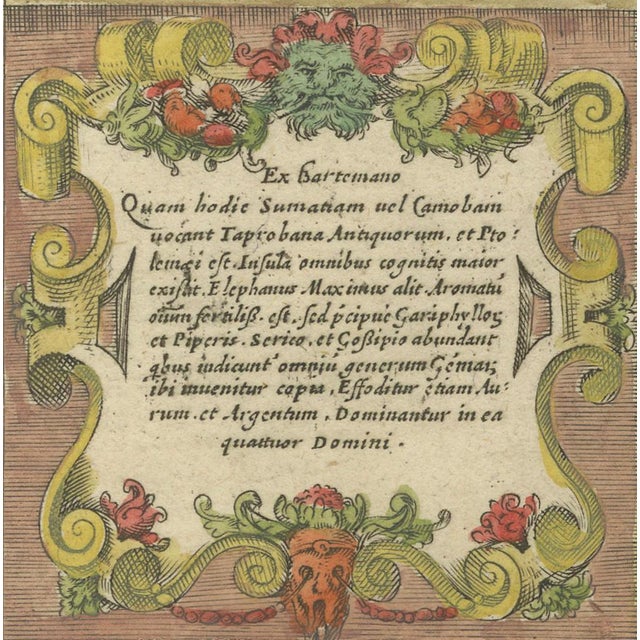 Ex Bartemano
Quam hodie Sumatiam uel Camobam
uocant Taprobana Antiquorum. et Pto⸗
lemæi est. Insula omnibus cognitis maior
exisat. Elephanus Maximus alit. Aromatū
ouum fertiliß. est. sed pcipuè Gariphylloȝ
et Piperis. Serico. et Goßipio abundant
qbus iudicunt omniū generum Gémaȝ
ibi inuenitur copia. Effoditur etiam Au⸗
rum. et Argentum. Dominantur in ea
quattuor Domini.